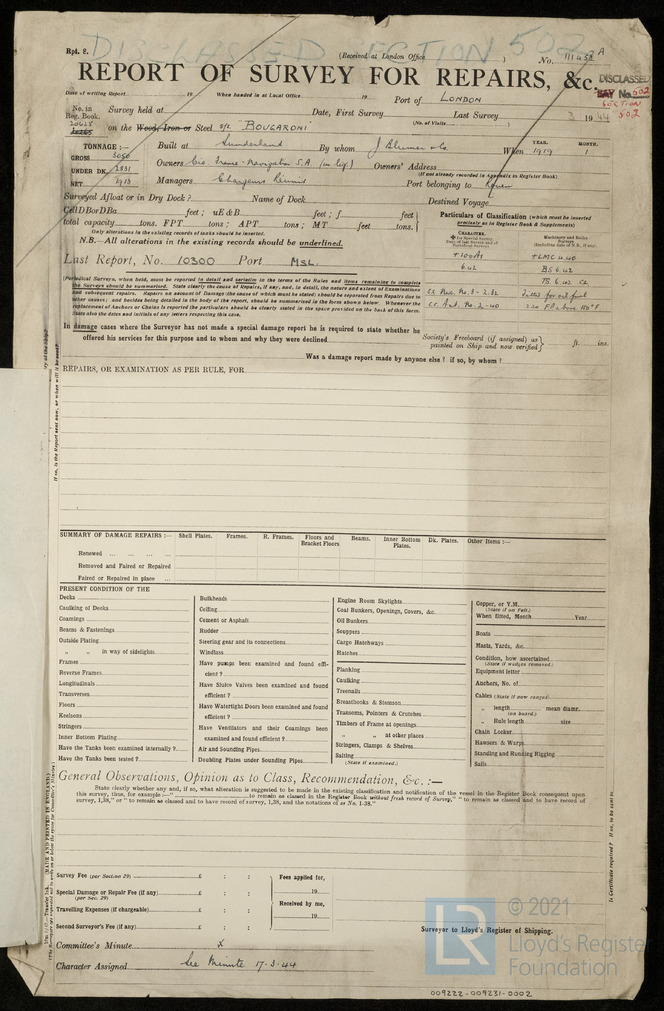 DISCLASSED SECTION 502
Rpt. 8.
(Received at London Office )
No. A
REPORT OF SURVEY FOR REPAIRS, &c.
DISCLASSED
No. 502
SECTION
502
Date of writing Report 19 When handed in at Local Office 19 Port of LONDON
No. in Reg. Book. Survey held at Date, First Survey Last Survey 19 44
(No. of Visits )
on the Wood, Iron or Steel s/s "BOUGARONI"
TONNAGE :—
GROSS 3050
UNDER DK. 2831
NET
Built at Sunderland By whom J Blumer & Co When 1919 1
YEAR. MONTH.
Owners Cie. Franc. Navigation S.A. (in liq.) Owners' Address
(If not already recorded in Appendix to Register Book.)
Managers Chargeurs Réunis Port belonging to Rouen
Surveyed Afloat or in Dry Dock? Name of Dock Destined Voyage
CellDBorDBa feet; uE&B feet; f feet
total capacity tons. FPT tons; APT tons; MT feet tons.
Only alterations in the existing records of tanks should be inserted.
N.B.—All alterations in the existing records should be underlined.
Last Report, No. 10300 Port MSL.
Particulars of Classification (which must be inserted
precisely as in Register Book & Supplements)
+100A1
+LMC 4.40
6.42
BS 6.42
TS. 6.42 CL
Fitted for oil fuel
(Periodical Surveys, when held, must be reported in detail and seriatim in the terms of the Rules and items remaining to complete
the Surveys should be summarised. State clearly the cause of Repairs, if any, and, in detail, the nature and extent of Examinations
and subsequent repairs. Repairs on account of Damage (the cause of which must be stated) should be separated from Repairs due to
other causes; and besides being detailed in the body of the report, should be summarised in the form shown below. Whenever the
replacement of Anchors or Chains is reported the particulars should be clearly stated in the space provided on the back of this form.
State also the dates and initials of any letters respecting this case.
In damage cases where the Surveyor has not made a special damage report he is required to state whether he
offered his services for this purpose and to whom and why they were declined
Society's Freeboard (if assigned) as
painted on Ship and now verified } ft. ins.
Was a damage report made by anyone else? if so, by whom?
REPAIRS, OR EXAMINATION AS PER RULE, FOR
SUMMARY OF DAMAGE REPAIRS :— Shell Plates. Frames. R. Frames. Floors and Bracket Floors Beams. Inner Bottom Plates. Dk. Plates. Other Items :—
Renewed ... ... ... ...
Removed and Faired or Repaired
Faired or Repaired in place ...
PRESENT CONDITION OF THE
Decks
Caulking of Decks
Coamings
Beams & Fastenings
Outside Plating
" " in way of sidelights
Frames
Reverse Frames
Longitudinals
Transverses
Floors
Keelsons
Stringers
Inner Bottom Plating
Have the Tanks been examined internally?
Have the Tanks been tested?
Bulkheads
Ceiling
Cement or Asphalt
Rudder
Steering gear and its connections
Windlass
Have pumps been examined and found efficient?
Have Sluice Valves been examined and found
efficient?
Have Watertight Doors been examined and found
efficient?
Have Ventilators and their Coamings been
examined and found efficient?
Air and Sounding Pipes
Doubling Plates under Sounding Pipes
Engine Room Skylights
Coal Bunkers, Openings, Covers, &c.
Oil Bunkers
Scuppers
Cargo Hatchways
Hatches
Planking
Caulking
Treenails
Breasthooks & Stemson
Transoms, Pointers & Crutches
Timbers of Frame at openings
" " at other places
Stringers, Clamps & Shelves
Salting
(State if examined.)
Copper, or Y.M.
(State if on Felt.)
When fitted, Month Year
Boats
Masts, Yards, &c.
Condition, how ascertained
(State if wedges removed.)
Equipment letter
Anchors, No. of
Cables (State if now ranged)
" length mean diamr.
(on board.)
" Rule length size
Chain Locker
Hawsers & Warps
Standing and Running Rigging
Sails
General Observations, Opinion as to Class, Recommendation, &c. :—
State clearly whether any and, if so, what alteration is suggested to be made in the existing classification and notification of the vessel in the Register Book consequent upon
this survey, thus, for example :—" to remain as classed in the Register Book without fresh record of Survey," "to remain as classed and to have record of
survey, 1,38," or "to remain as classed and to have record of survey, 1,38, and the notations of ss No. 1-38."
Survey Fee (per Section 29) £ : :
Special Damage or Repair Fee (if any) £ : :
(per Sec. 29)
Travelling Expenses (if chargeable) £ : :
Second Surveyor's Fee (if any) £ : :
Fees applied for,
19
Received by me,
19
Surveyor to Lloyd's Register of Shipping.
Committee's Minute
Character Assigned See Minute 17-3-44
LR
© 2021
Lloyd's Register
Foundation
009222-009231-0002